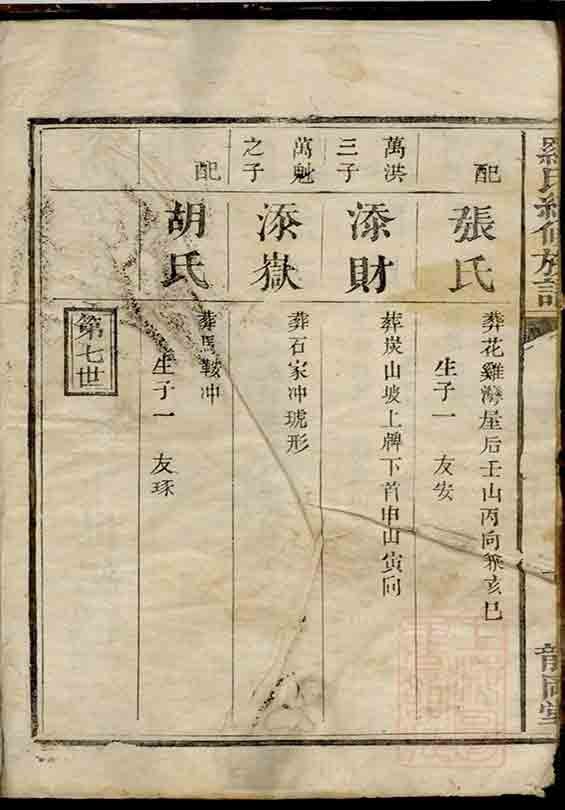 羅氏續修族譜
配
張氏
葬花雞灣屋后壬山丙向兼亥巳
生子一 友安
萬洪
三子
添財
葬炭山坡上牌下首申山寅向
萬魁
之子
添嶽
葬石家冲琥形
配
胡氏
葬馬鞍冲
生子一 友琢
第七世